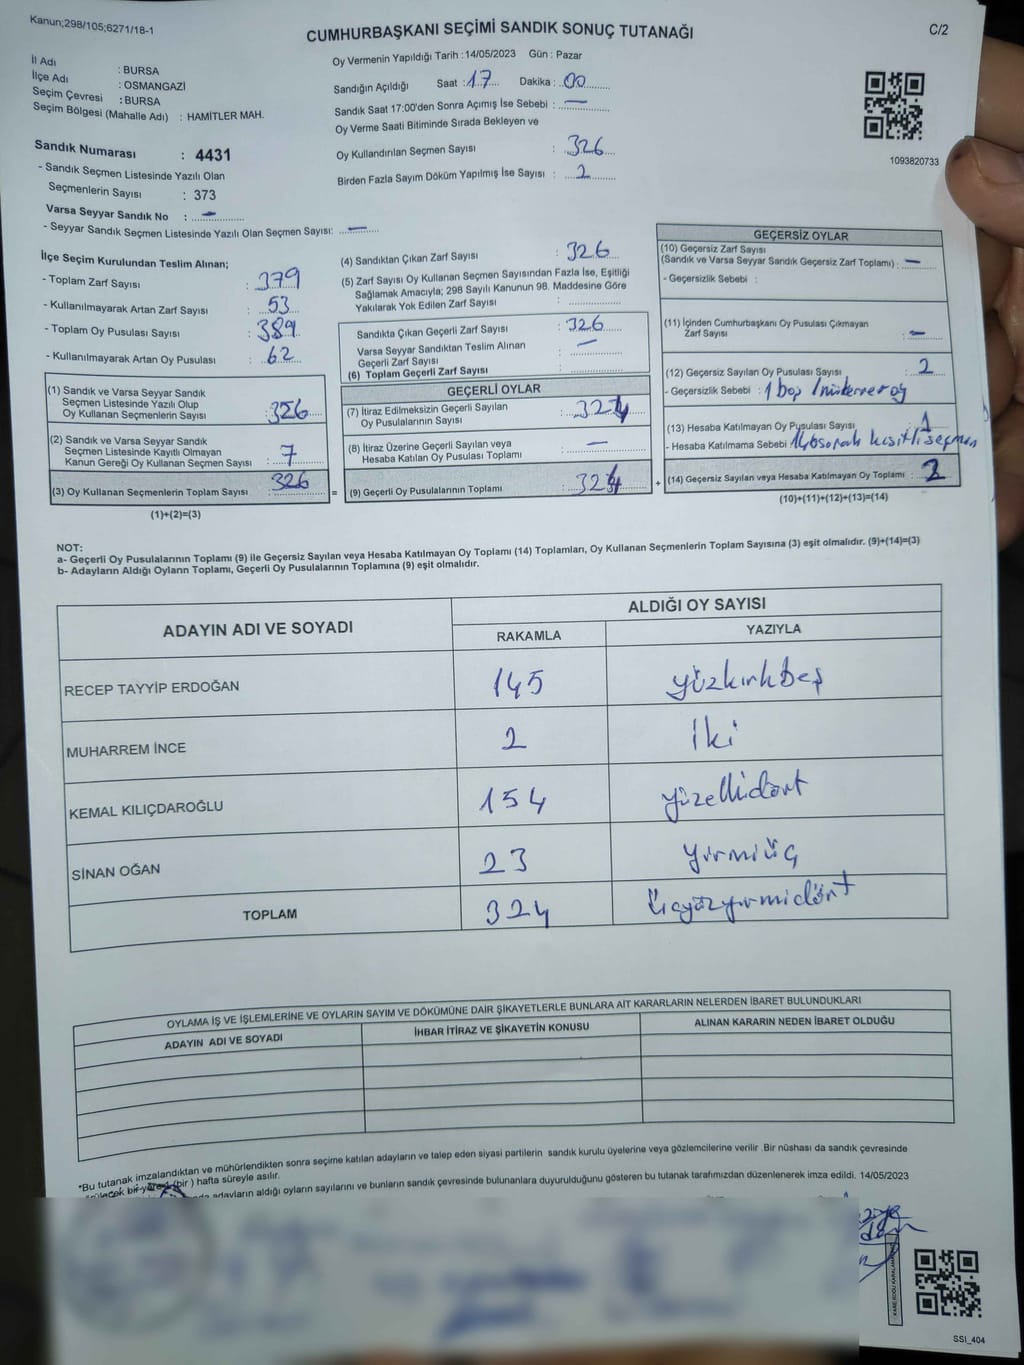 Kanun;298/105;6271/18-1
CUMHURBAŞKANI SEÇİMİ SANDIK SONUÇ TUTANAĞI
C/2
İl Adı : BURSA
İlçe Adı : OSMANGAZİ
Seçim Çevresi : BURSA
Seçim Bölgesi (Mahalle Adı) : HAMİTLER MAH.
Oy Vermenin Yapıldığı Tarih :14/05/2023 Gün : Pazar
Sandığın Açıldığı Saat : 17 Dakika : 00
Sandık Saat 17:00'den Sonra Açımış İse Sebebi : —
Oy Verme Saati Bitiminde Sırada Bekleyen ve
Oy Kullandırılan Seçmen Sayısı : 326
Birden Fazla Sayım Döküm Yapılmış İse Sayısı : 2
1093820733
Sandık Numarası : 4431
- Sandık Seçmen Listesinde Yazılı Olan
Seçmenlerin Sayısı : 373
Varsa Seyyar Sandık No : —
- Seyyar Sandık Seçmen Listesinde Yazılı Olan Seçmen Sayısı: —
İlçe Seçim Kurulundan Teslim Alınan;
- Toplam Zarf Sayısı : 379
- Kullanılmayarak Artan Zarf Sayısı : 53
- Toplam Oy Pusulası Sayısı : 389
- Kullanılmayarak Artan Oy Pusulası : 62
(1) Sandık ve Varsa Seyyar Sandık
Seçmen Listesinde Yazılı Olup
Oy Kullanan Seçmenlerin Sayısı : 326
(2) Sandık ve Varsa Seyyar Sandık
Seçmen Listesinde Kayıtlı Olmayan
Kanun Gereği Oy Kullanan Seçmen Sayısı : 7
(3) Oy Kullanan Seçmenlerin Toplam Sayısı : 326
(1)+(2)=(3)
(4) Sandıktan Çıkan Zarf Sayısı : 326
(5) Zarf Sayısı Oy Kullanan Seçmen Sayısından Fazla İse, Eşitliği
Sağlamak Amacıyla; 298 Sayılı Kanunun 98. Maddesine Göre
Yakılarak Yok Edilen Zarf Sayısı :
Sandıkta Çıkan Geçerli Zarf Sayısı : 326
Varsa Seyyar Sandıktan Teslim Alınan
Geçerli Zarf Sayısı : —
(6) Toplam Geçerli Zarf Sayısı :
GEÇERLİ OYLAR
(7) İtiraz Edilmeksizin Geçerli Sayılan
Oy Pusulasının Sayısı : 324
(8) İtiraz Üzerine Geçerli Sayılan veya
Hesaba Katılan Oy Pusulası Toplamı : —
= (9) Geçerli Oy Pusulalarının Toplamı : 324
GEÇERSİZ OYLAR
(10) Geçersiz Zarf Sayısı
(Sandık ve Varsa Seyyar Sandık Geçersiz Zarf Toplamı) : —
- Geçersizlik Sebebi :
(11) İçinden Cumhurbaşkanı Oy Pusulası Çıkmayan
Zarf Sayısı : —
(12) Geçersiz Sayılan Oy Pusulası Sayısı : 2
- Geçersizlik Sebebi : 1 boş / mükerrer oy
(13) Hesaba Katılmayan Oy Pusulası Sayısı : 1
- Hesaba Katılmama Sebebi : kısıtlı seçmen
+ (14) Geçersiz Sayılan veya Hesaba Katılmayan Oy Toplamı : 2
(10)+(11)+(12)+(13)=(14)
NOT:
a- Geçerli Oy Pusulalarının Toplamı (9) ile Geçersiz Sayılan veya Hesaba Katılmayan Oy Toplamı (14) Toplamları, Oy Kullanan Seçmenlerin Toplam Sayısına (3) eşit olmalıdır. (9)+(14)=(3)
b- Adayların Aldığı Oyların Toplamı, Geçerli Oy Pusulalarının Toplamına (9) eşit olmalıdır.
ADAYIN ADI VE SOYADI
ALDIĞI OY SAYISI
RAKAMLA YAZIYLA
RECEP TAYYİP ERDOĞAN 145 yüzkırkbeş
MUHARREM İNCE 2 iki
KEMAL KILIÇDAROĞLU 154 yüzellidört
SİNAN OĞAN 23 yirmiüç
TOPLAM 324 üçyüzyirmidört
OYLAMA İŞ VE İŞLEMLERİNE VE OYLARIN SAYIM VE DÖKÜMÜNE DAİR ŞİKAYETLERLE BUNLARA AİT KARARLARIN NELERDEN İBARET BULUNDUKLARI
ADAYIN ADI VE SOYADI
İHBAR İTİRAZ VE ŞİKAYETİN KONUSU
ALINAN KARARIN NEDEN İBARET OLDUĞU
*Bu tutanak imzalandıktan ve mühürlendikten sonra seçime katılan adayların ve talep eden siyasi partilerin sandık kurulu üyelerine veya gözlemcilerine verilir Bir nüshası da sandık çevresinde
bir yere (bir ) hafta süreyle asılır.
adayların aldığı oyların sayılarını ve bunların sandık çevresinde bulunanlara duyurulduğunu gösteren bu tutanak tarafımızdan düzenlenerek imza edildi. 14/05/2023
SSI_404